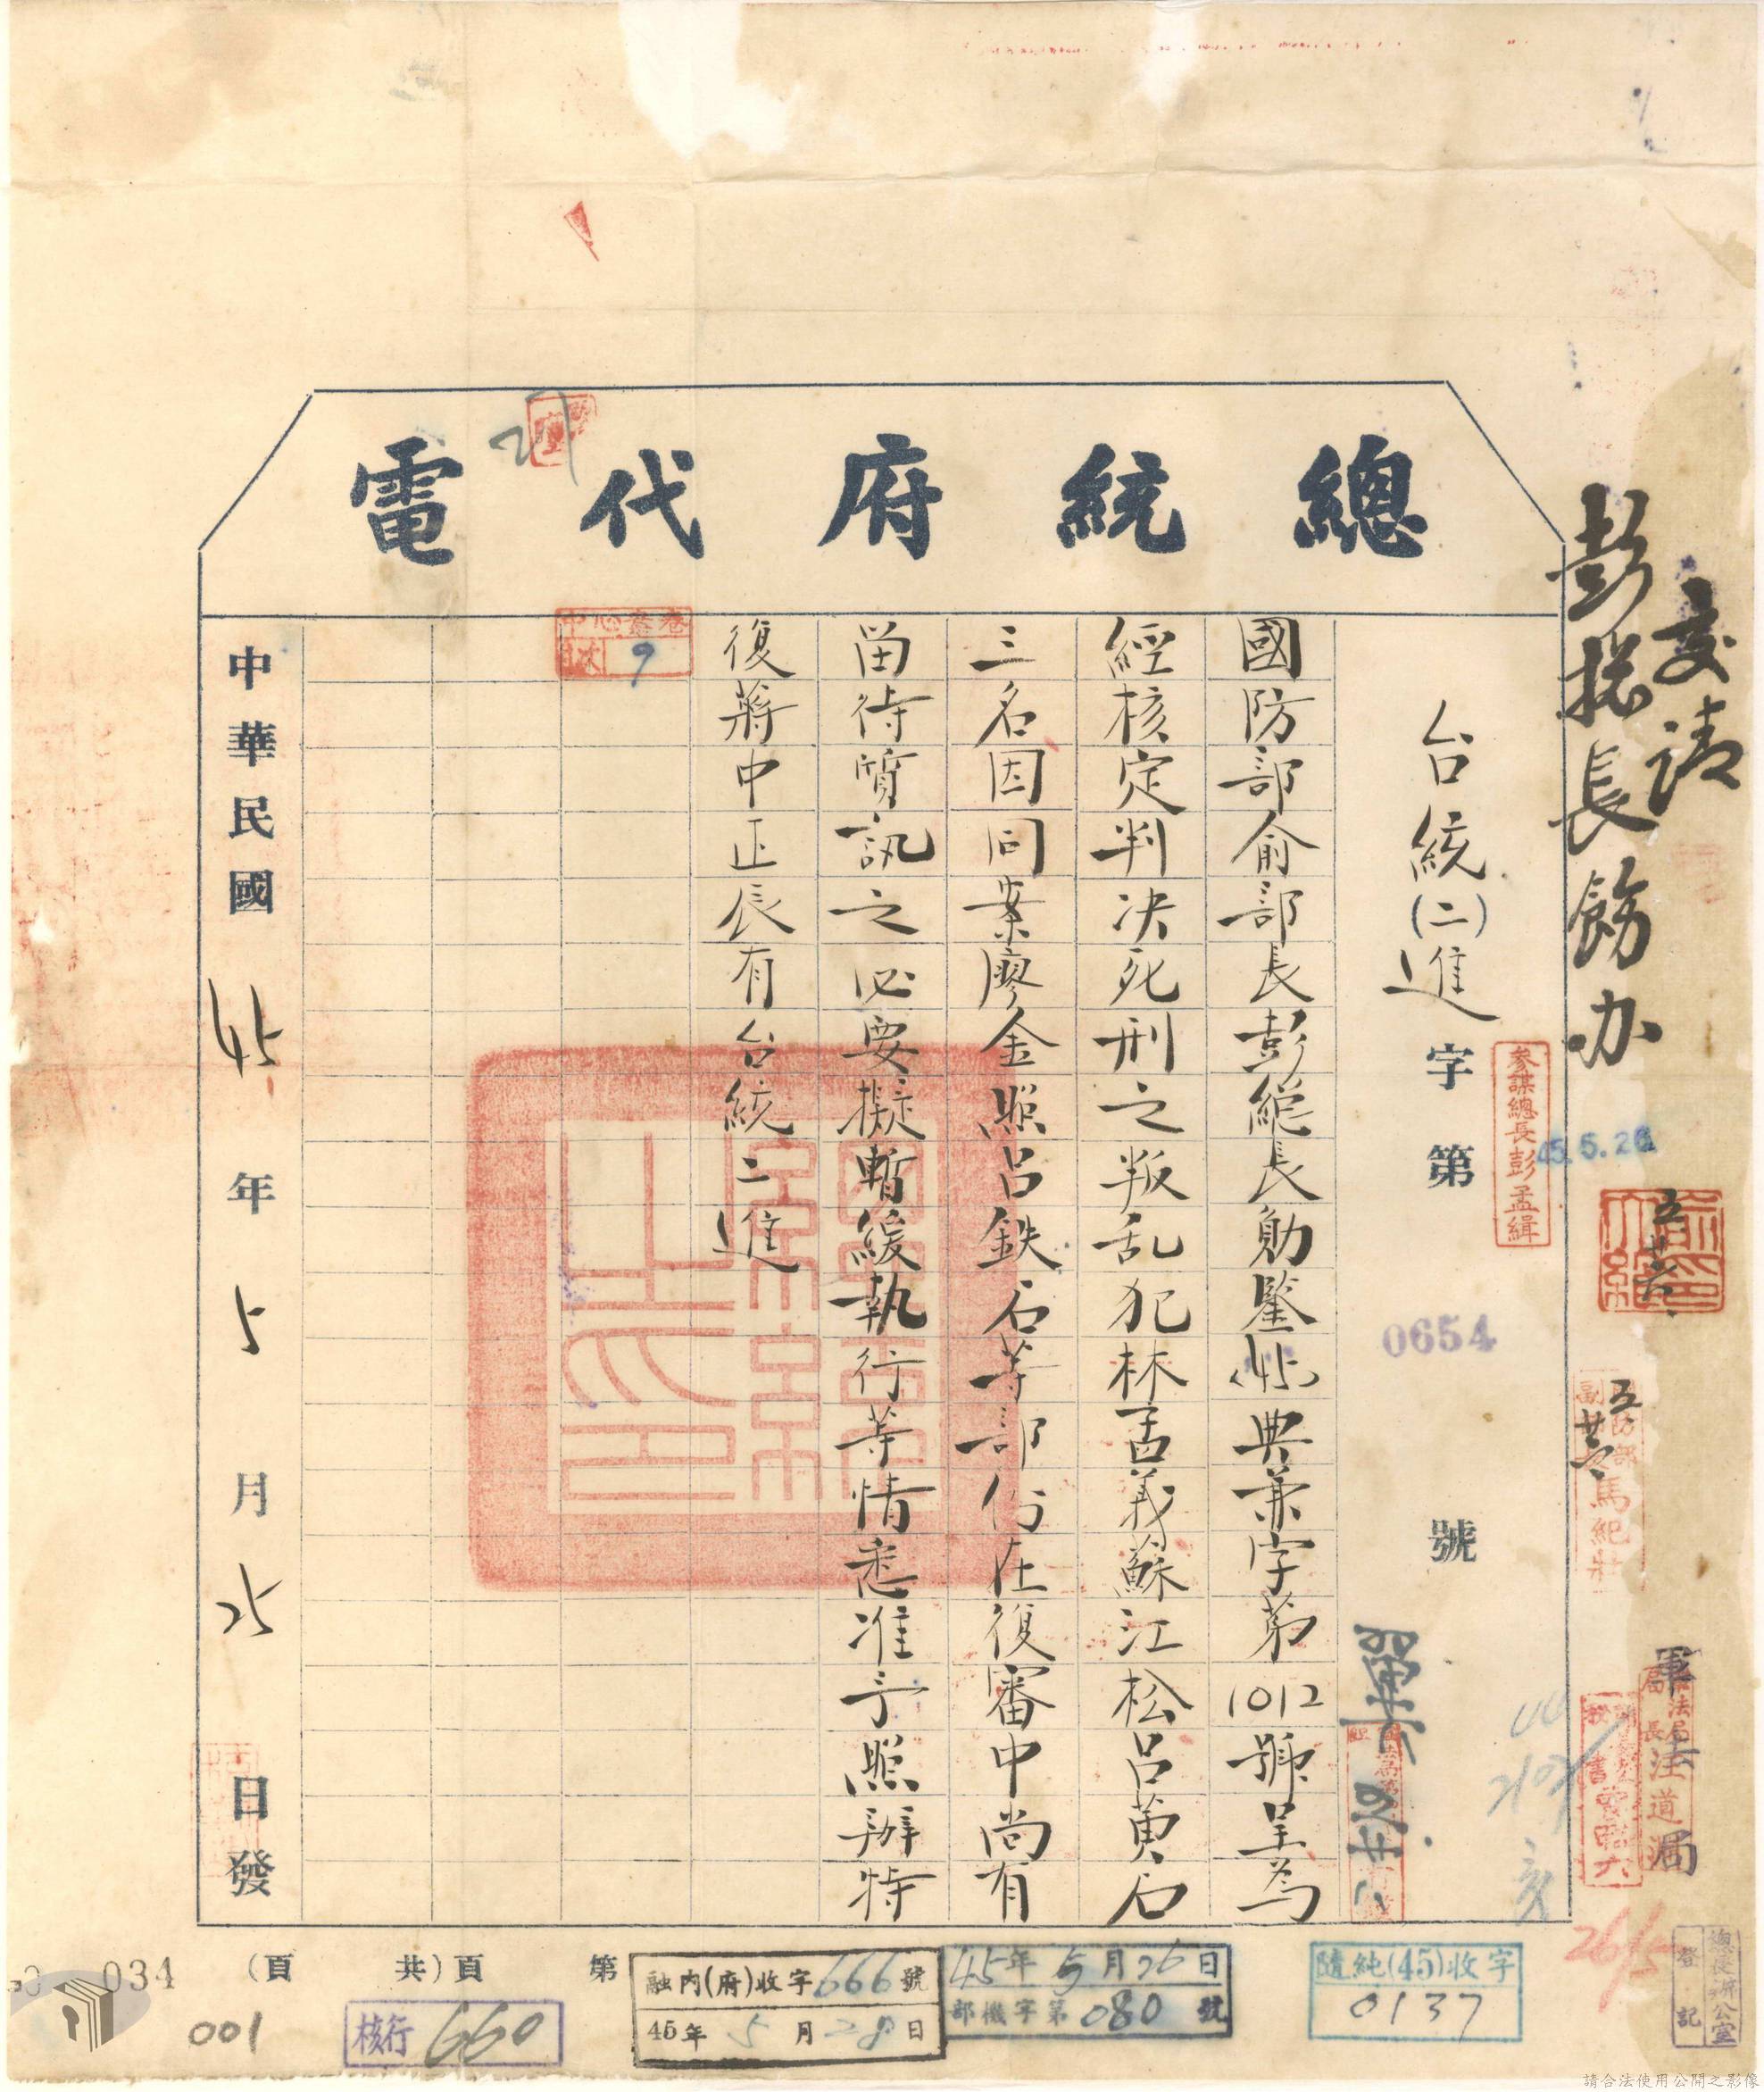 總統府代電
彭總長飭办
交請
台統(二)進字第0654號
參謀總長彭孟緝
45.5.26
國防部俞部長彭總長勛鑒(45)典兼字第1012號呈為
經核定判決死刑之叛乱犯林茍義蘇江松呂萬石
三名因同案廖金照呂鉄石等部份在復審中尚有
留待質訊之必要擬暫緩執行等情悉准予照辦特
復蔣中正辰有台統二進
中華民國45年5月25日發
馬紀壯
軍法局
局長汪道淵
總長辦公室
登記
隨純(45)收字
0137
45年5月26日
部機字第080號
融內(府)收字666號
45年5月28日
第 頁(共 頁)
核行660
001
034
請合法使用公開之影像